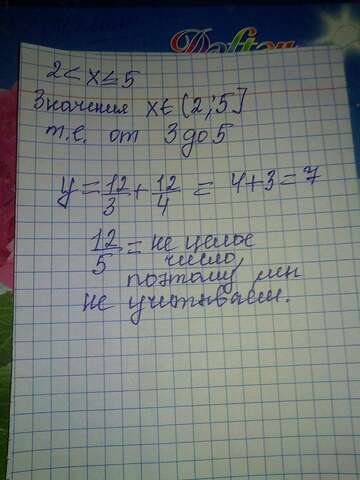 2 < x ≤ 5
Значения x ∈ (2; 5]
т.е. от 3 до 5
y = 12/3 + 12/4 = 4+3 = 7
12/5 = не целое
число,
поэтому мы
не учитываем.